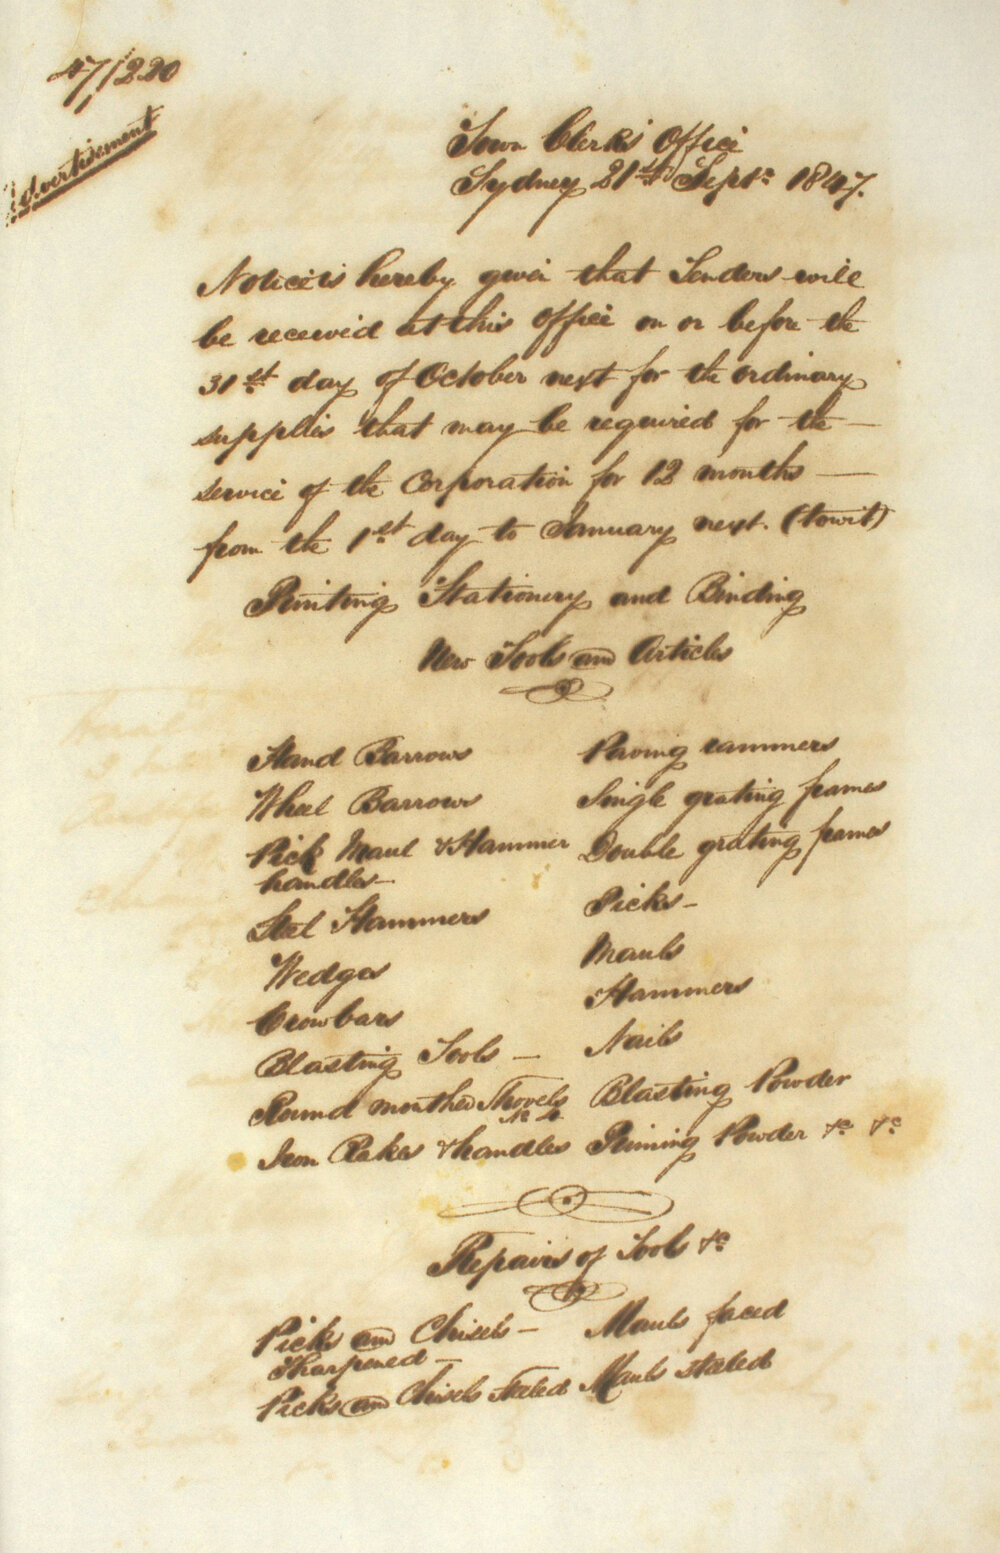 47/220
Advertisement
Town Clerks Office
Sydney 21st Septr 1847.
Notice is hereby given that Tenders will
be received at this Office on or before the
31st day of October next for the ordinary
supplies that may be required for the —
service of the Corporation for 12 months —
from the 1st day to January next. (towit)
Printing Stationery and Binding
New Tools and Articles
Hand Barrows
Wheel Barrows
Pick Maul & Hammer
handles —
Steel Hammers
Wedges
Crowbars
Blasting Tools —
Round mouthed Shovels
No 4
Iron Rakes & handles
Paving rammers
Single grating frames
Double grating frames
Picks —
Mauls
Hammers
Nails
Blasting Powder
Priming Powder &c &c
Repairs of Tools &c
Picks and Chisels —
Sharpened —
Picks and Chisels steeled
Mauls faced
Mauls steeled